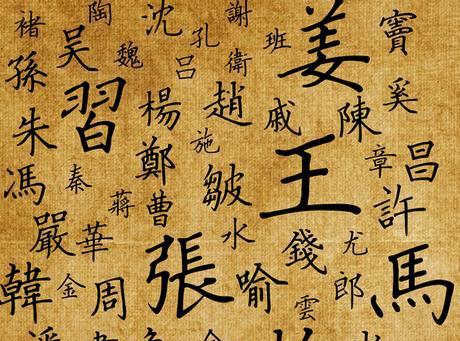 褚 陶 沈 孔 謝 班 姜 竇
孫 吳 魏 呂 衛
朱 習 楊 施 趙 戚 陳 奚
馮 秦 鄭 皺 王 章 昌
嚴 華 蔣 曹 水 錢 尤 許
韓 金 周 張 喻 雲 郎 馬